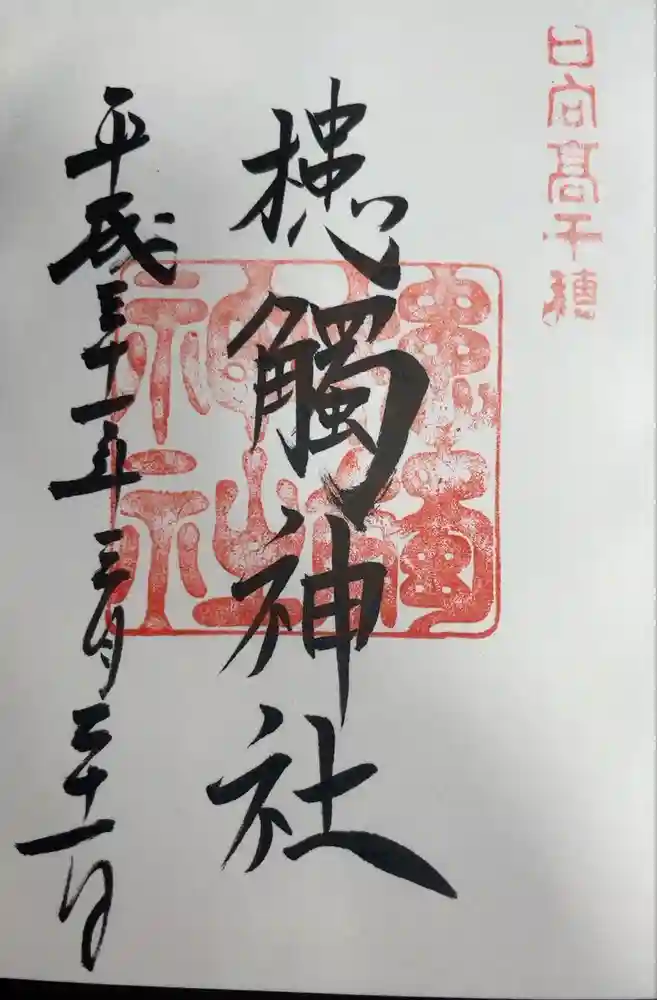 日向高千穂
槵觸神社
槵觸神社
平成三十一年三月三十一日